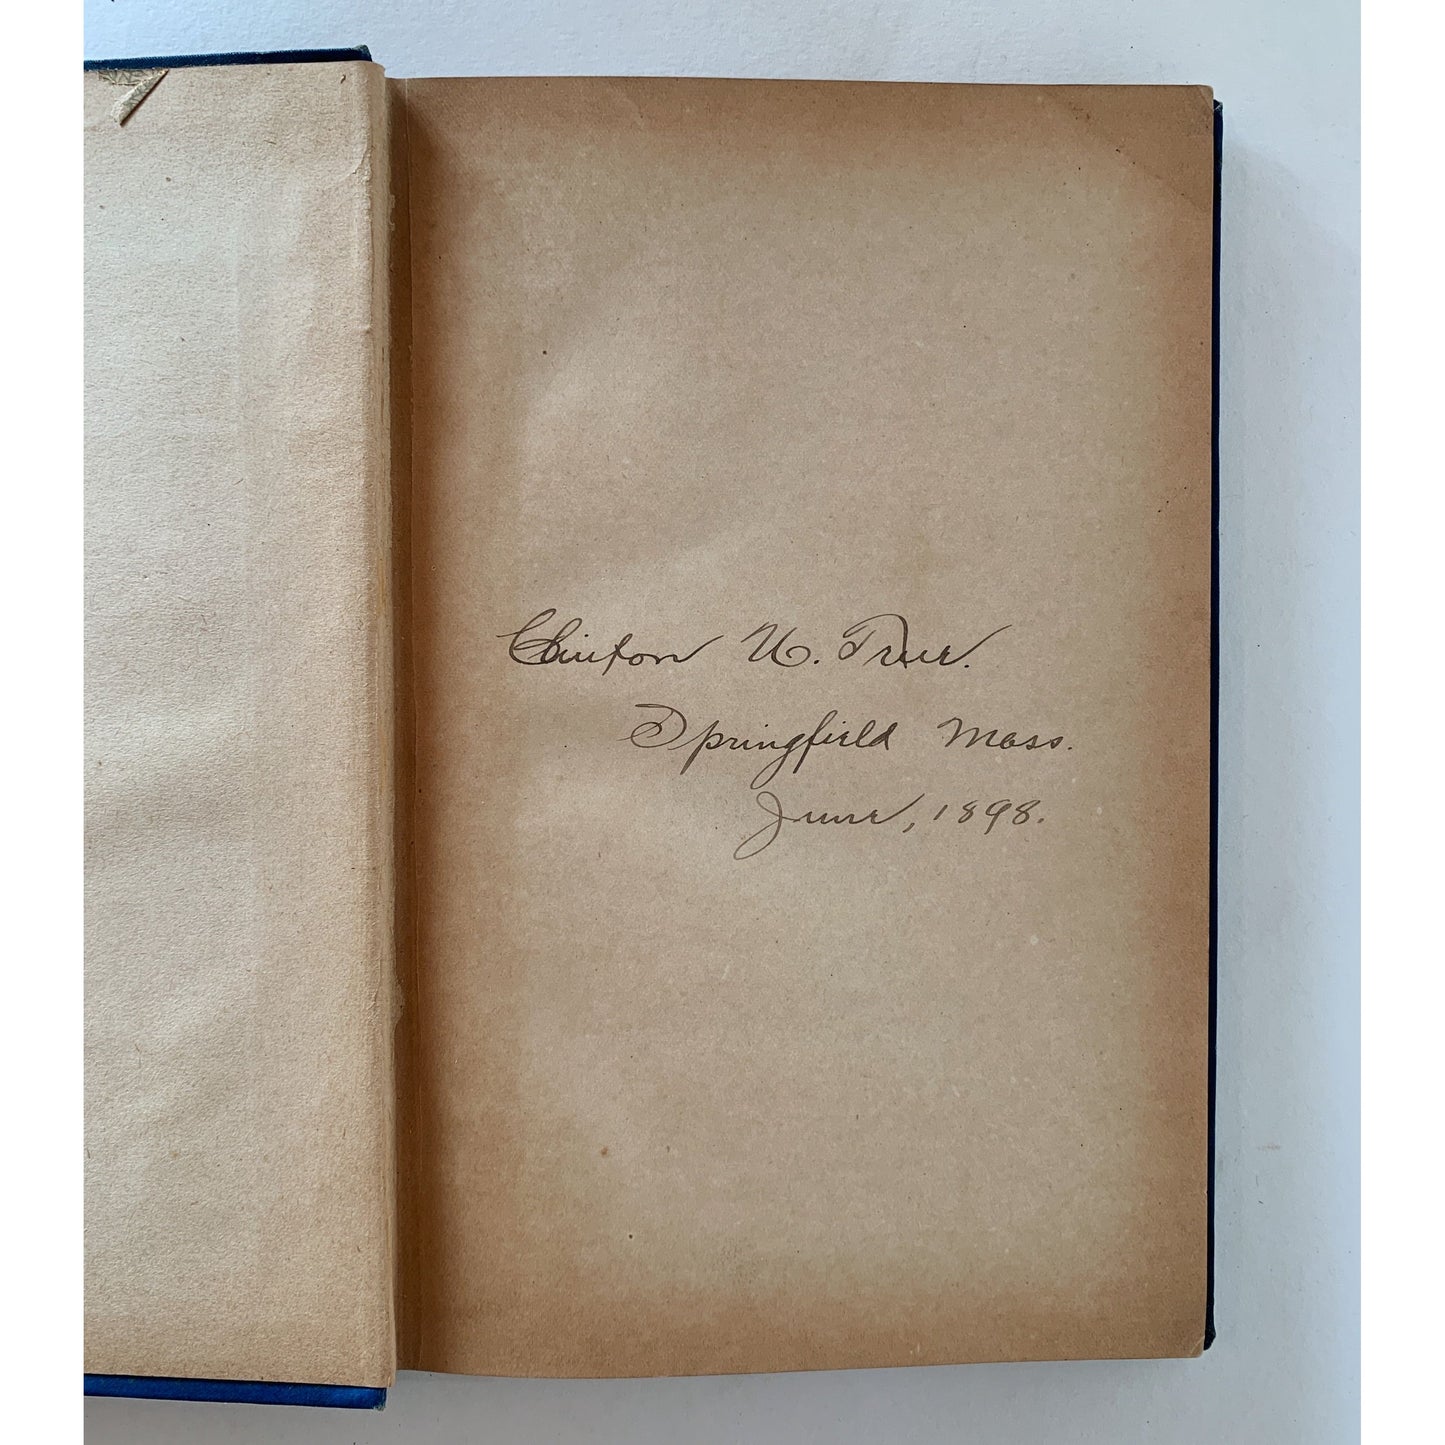 Clinton W. True.
Springfield Mass.
June, 1898.